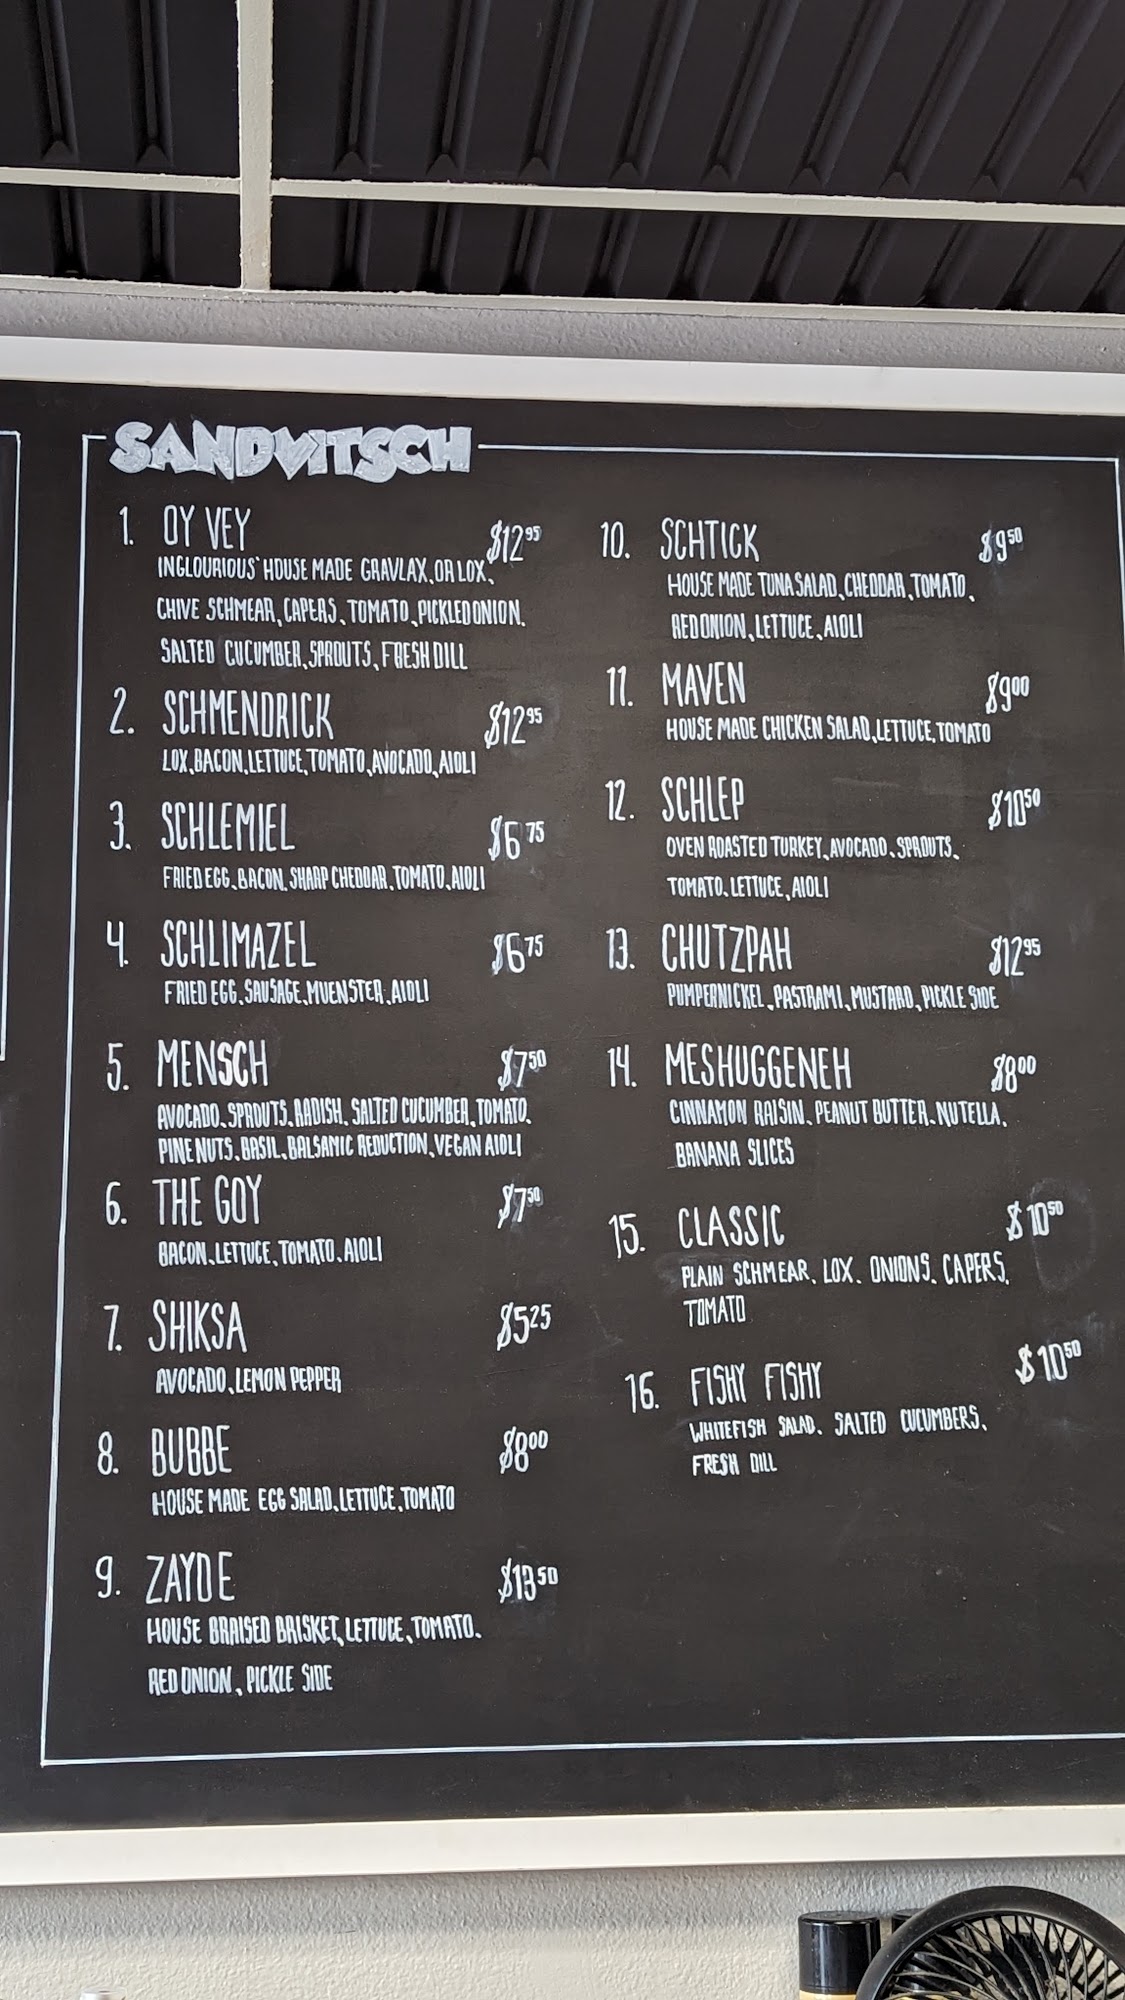 SANDVITSCH
1. OY VEY $12⁹⁵
INGLOURIOUS' HOUSE MADE GRAVLAX, OR LOX,
CHIVE SCHMEAR, CAPERS, TOMATO, PICKLED ONION,
SALTED CUCUMBER, SPROUTS, FRESH DILL
2. SCHMENDRICK $12⁹⁵
LOX, BACON, LETTUCE, TOMATO, AVOCADO, AIOLI
3. SCHLEMIEL $6⁷⁵
FRIED EGG, BACON, SHARP CHEDDAR, TOMATO, AIOLI
4. SCHLIMAZEL $6⁷⁵
FRIED EGG, SAUSAGE, MUENSTER, AIOLI
5. MENSCH $7⁵⁰
AVOCADO, SPROUTS, RADISH, SALTED CUCUMBER, TOMATO,
PINE NUTS, BASIL, BALSAMIC REDUCTION, VEGAN AIOLI
6. THE GOY $7⁵⁰
BACON, LETTUCE, TOMATO, AIOLI
7. SHIKSA $5²⁵
AVOCADO, LEMON PEPPER
8. BUBBE $8⁰⁰
HOUSE MADE EGG SALAD, LETTUCE, TOMATO
9. ZAYDE $13⁵⁰
HOUSE BRAISED BRISKET, LETTUCE, TOMATO,
RED ONION, PICKLE SIDE
10. SCHTICK $9⁵⁰
HOUSE MADE TUNA SALAD, CHEDDAR, TOMATO,
RED ONION, LETTUCE, AIOLI
11. MAVEN $9⁰⁰
HOUSE MADE CHICKEN SALAD, LETTUCE, TOMATO
12. SCHLEP $10⁵⁰
OVEN ROASTED TURKEY, AVOCADO, SPROUTS,
TOMATO, LETTUCE, AIOLI
13. CHUTZPAH $12⁹⁵
PUMPERNICKEL, PASTRAMI, MUSTARD, PICKLE SIDE
14. MESHUGGENEH $8⁰⁰
CINNAMON RAISIN, PEANUT BUTTER, NUTELLA,
BANANA SLICES
15. CLASSIC $10⁵⁰
PLAIN SCHMEAR, LOX, ONIONS, CAPERS,
TOMATO
16. FISHY FISHY $10⁵⁰
WHITEFISH SALAD, SALTED CUCUMBERS,
FRESH DILL